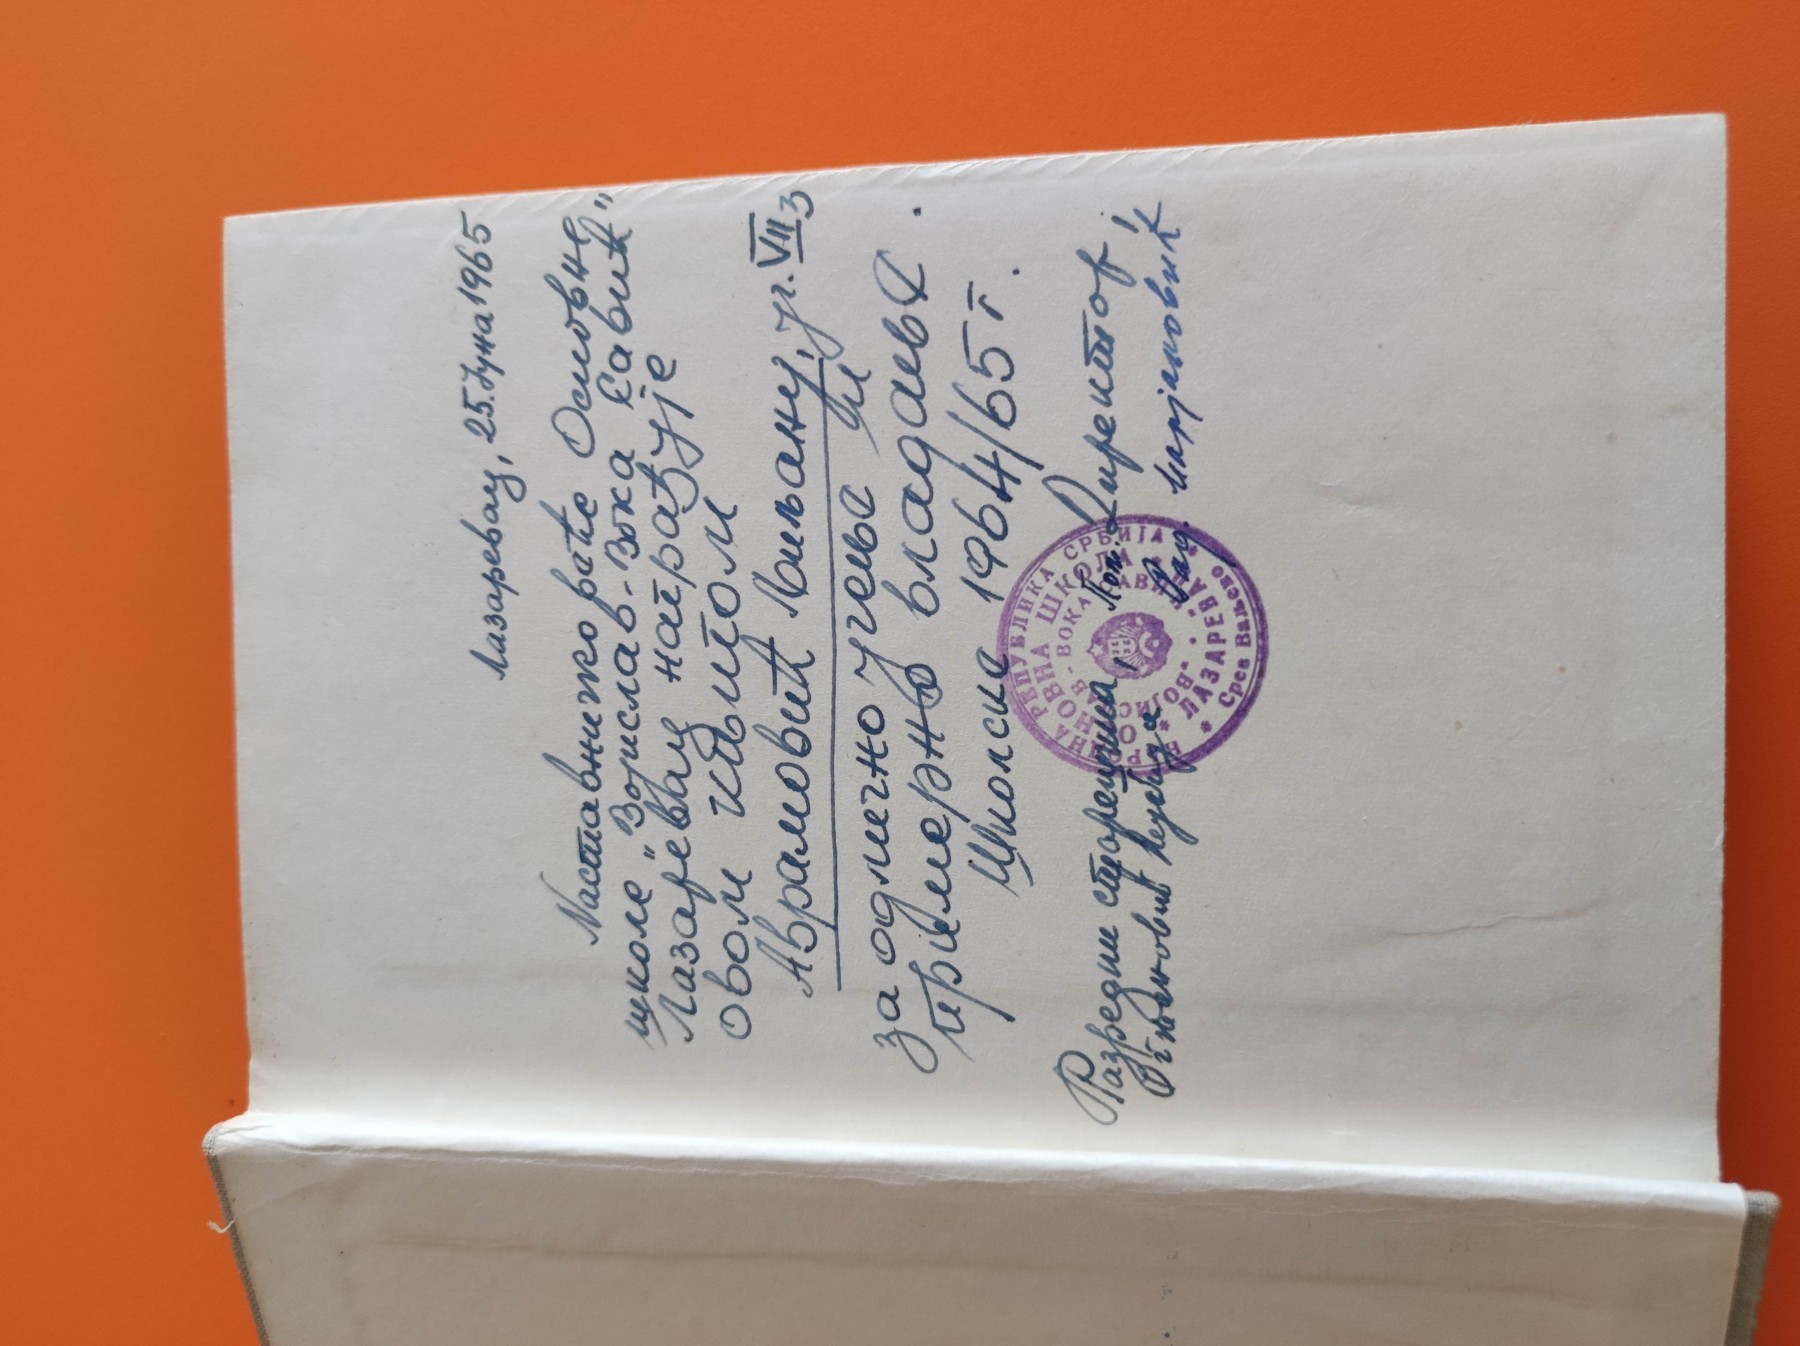 Лазаревац, 25. јуна 1965
Наставничко веће Основне
школе „Борислав-Вока Савић"
Лазаревац награђује
овом књигом
Аврамовић Љиљану, уч. VII3
за одлично учење и
примерно владање.
Школске 1964/65 г.
Разредни старешина, Пом. Директор,
Огњановић Рад. Марјановић
РЕПУБЛИКА СРБИЈА
ОСНОВНА ШКОЛА
"БОРИСАВ - ВОКА САВИЋ"
* ЛАЗАРЕВАЦ *
Срез Ваљево